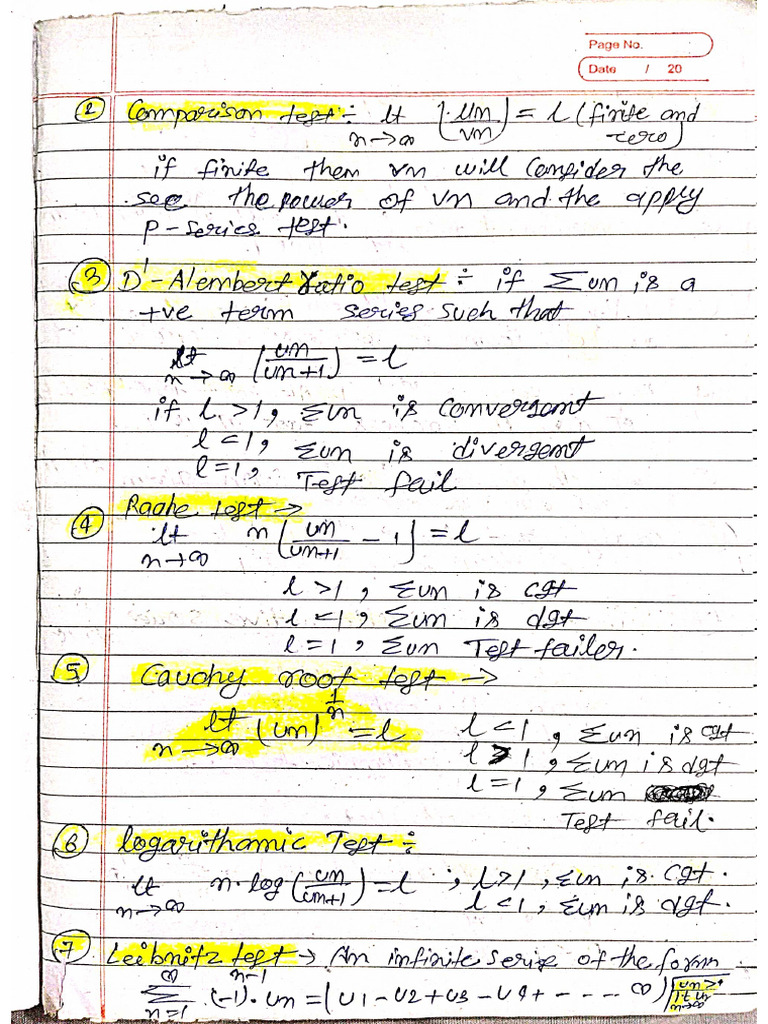 Page No.
Date / 20
② Comparison test ÷ lt n→∞ (un/vn) = l (finite and zero)
if finite them vn will Consider the
see the power of vn and the apply
P-series test.
③ D'-Alembert ratio test ÷ if Σun is a
+ve term series such that
lt n→∞ (un/un+1) = l
if l >1, Σun is convergent
l <1, Σun is divergent
l =1, Test fail
④ Raahe test →
lt n→∞ n (un/un+1 - 1) = l
l >1, Σun is cgt
l <1, Σun is dgt
l =1, Σun Test failer.
⑤ Cauchy root test →
lt n→∞ (un)^1/n = l l <1, Σun is cgt
l >1, Σun is dgt
l =1, Σun
Test fail.
⑥ logarithamic Test ÷
lt n→∞ n·log (un/un+1) = l, l>1, Σun is cgt.
l <1, Σun is dgt.
⑦ Leibnitz test → An infinite serise of the form
∞Σn=1 (-1)^n-1 · un = (u1 - u2 + u3 - u4 + - - - - ∞)